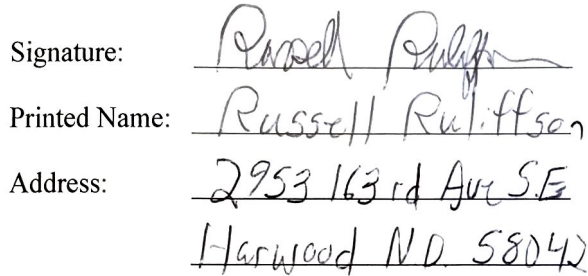 Signature: Russell Ruliffson
Printed Name: Russell Ruliffson
Address: 2953 163rd Ave S.E
Harwood N.D. 58042